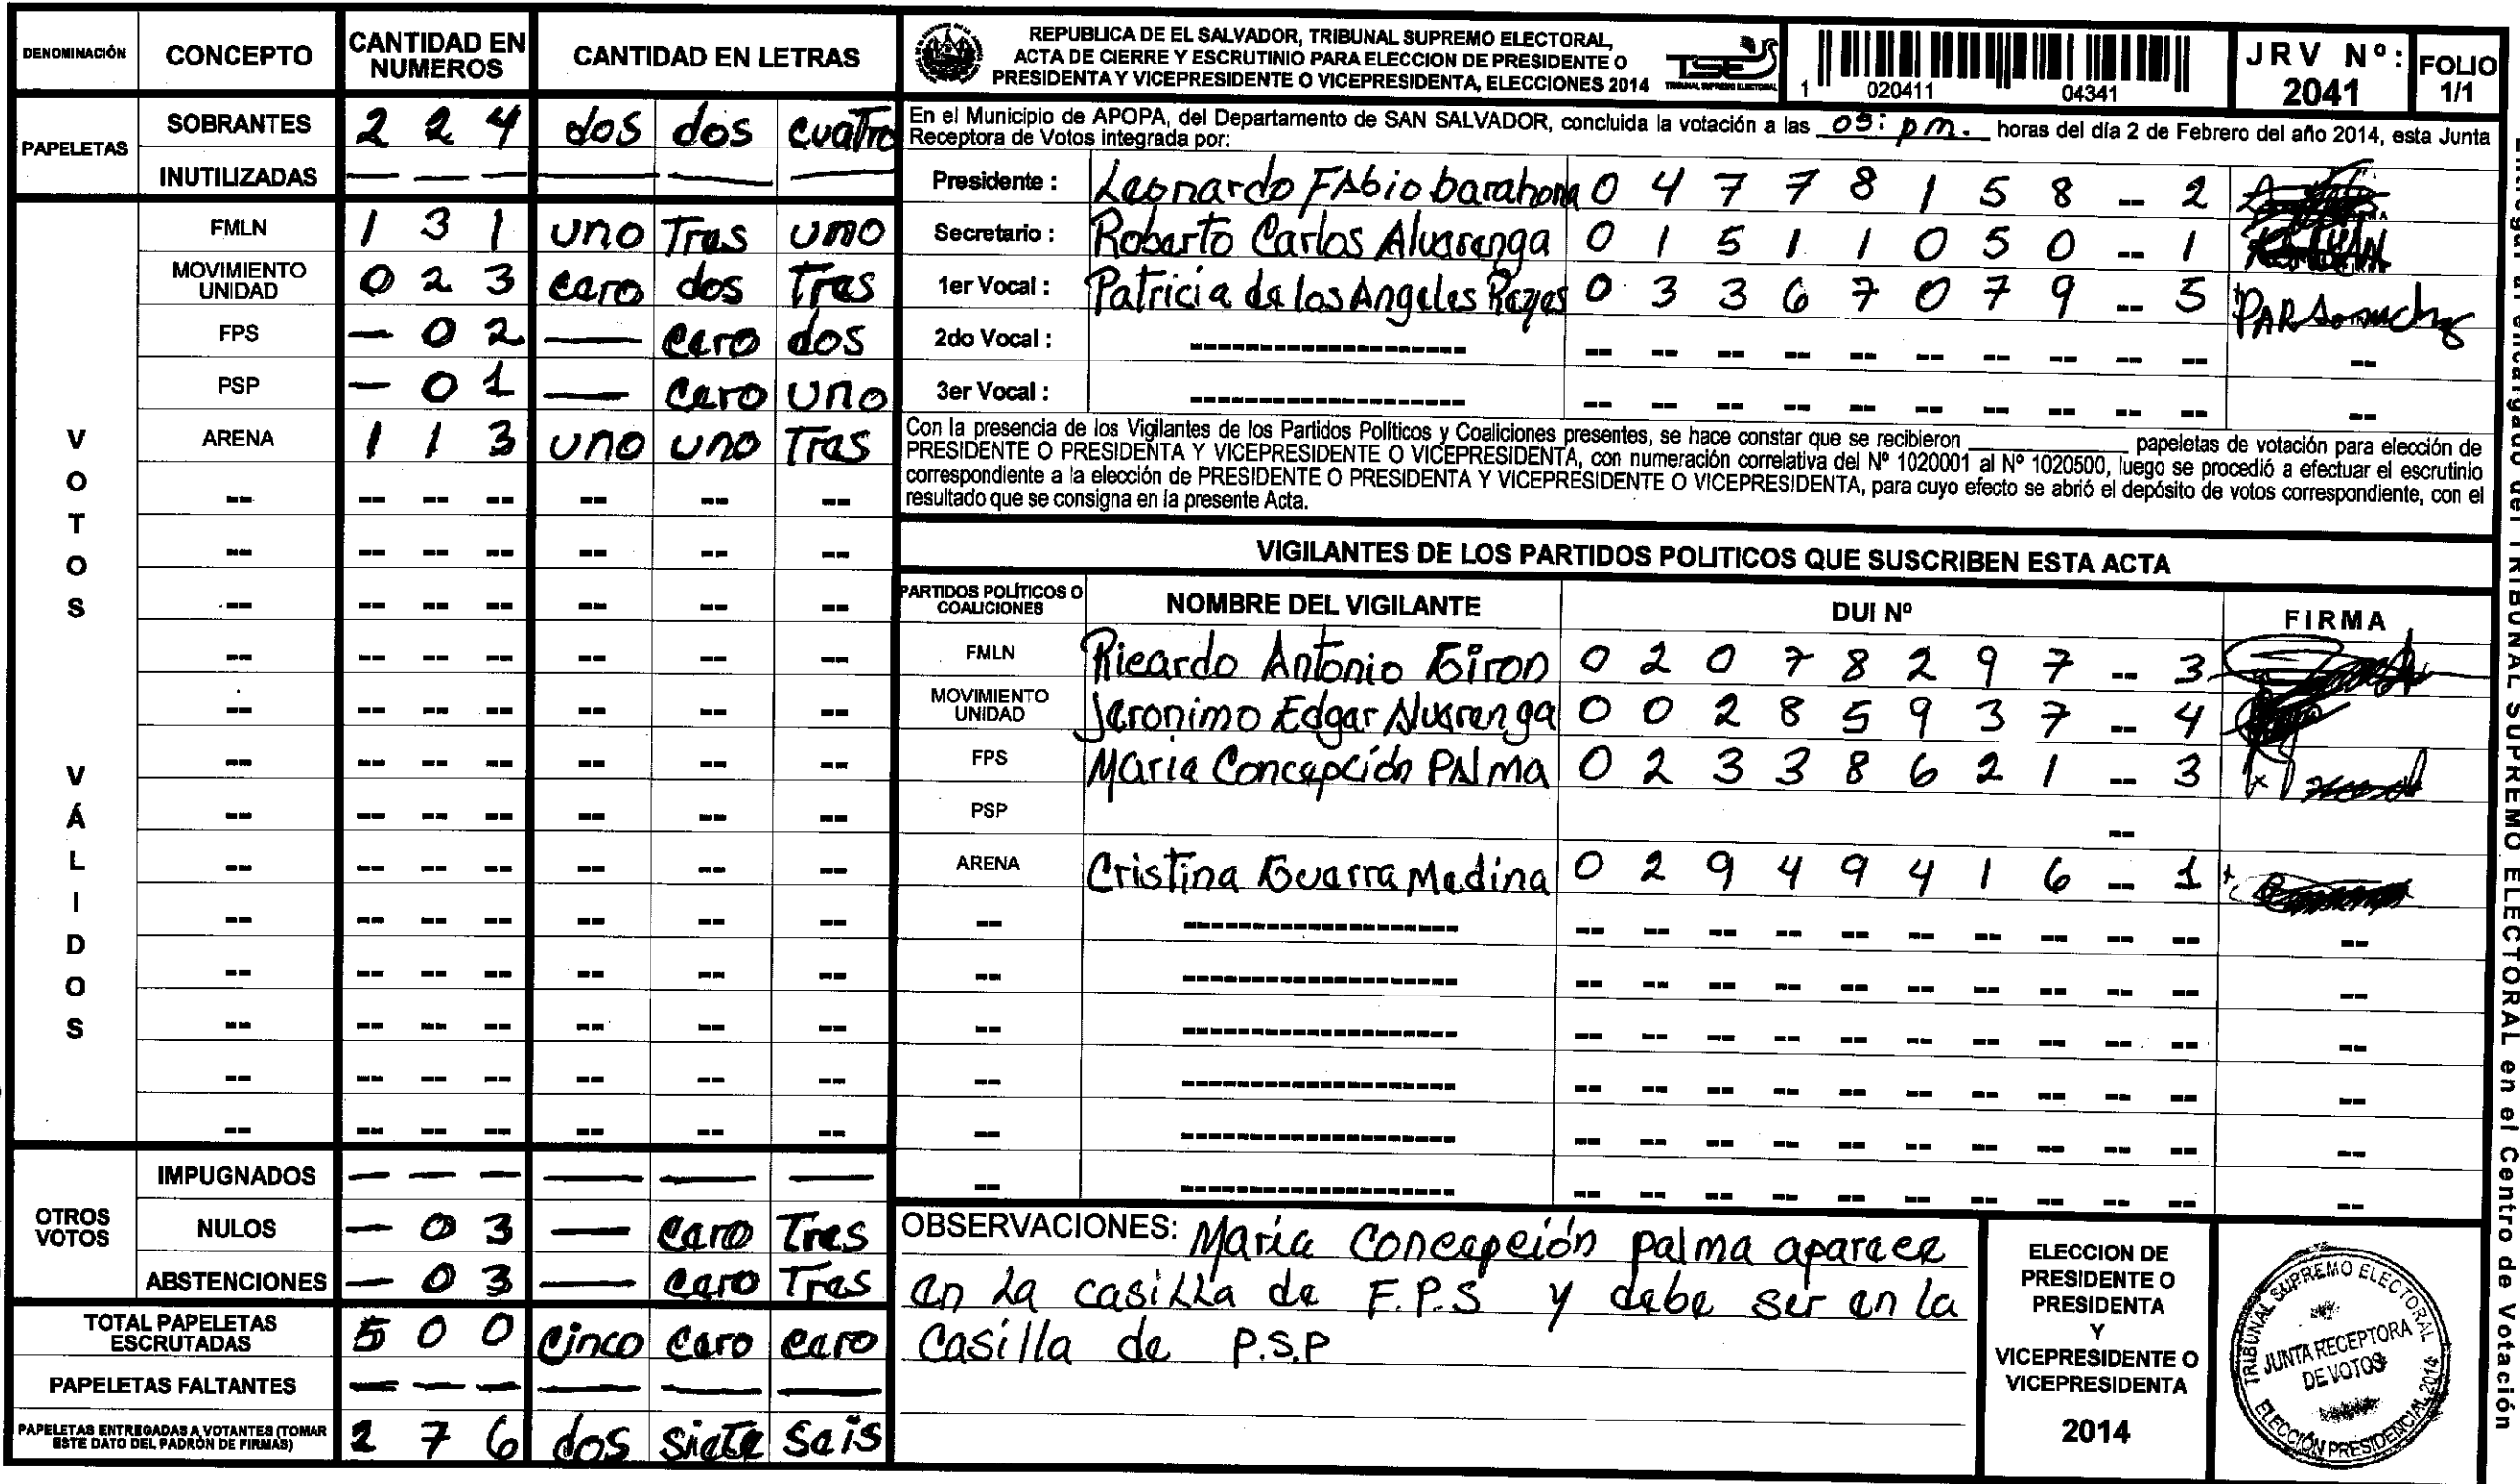 DENOMINACIÓN CONCEPTO CANTIDAD EN NUMEROS CANTIDAD EN LETRAS
PAPELETAS
SOBRANTES 2 2 4 dos dos cuatro
INUTILIZADAS — — — — — —
VOTOS VÁLIDOS
FMLN 1 3 1 uno Tres uno
MOVIMIENTO UNIDAD 0 2 3 cero dos Tres
FPS — 0 2 — cero dos
PSP — 0 1 — cero uno
ARENA 1 1 3 uno uno Tres
OTROS VOTOS
IMPUGNADOS — — — — — —
NULOS — 0 3 — cero Tres
ABSTENCIONES — 0 3 — cero Tres
TOTAL PAPELETAS ESCRUTADAS 5 0 0 cinco cero cero
PAPELETAS FALTANTES — — — — — —
PAPELETAS ENTREGADAS A VOTANTES (TOMAR ESTE DATO DEL PADRÓN DE FIRMAS) 2 7 6 dos siete seis
REPUBLICA DE EL SALVADOR, TRIBUNAL SUPREMO ELECTORAL,
ACTA DE CIERRE Y ESCRUTINIO PARA ELECCION DE PRESIDENTE O
PRESIDENTA Y VICEPRESIDENTE O VICEPRESIDENTA, ELECCIONES 2014
TSE
TRIBUNAL SUPREMO ELECTORAL
1 020411 04341
JRV Nº: 2041
FOLIO 1/1
En el Municipio de APOPA, del Departamento de SAN SALVADOR, concluida la votación a las 05: pm. horas del día 2 de Febrero del año 2014, esta Junta
Receptora de Votos integrada por:
Presidente : Leonardo FAbio barahona 0 4 7 7 8 1 5 8 -- 2
Secretario : Roberto Carlos Alvarenga 0 1 5 1 1 0 5 0 -- 1
1er Vocal : Patricia de los Angeles Reyes 0 3 3 6 7 0 7 9 -- 5
2do Vocal :
3er Vocal :
Con la presencia de los Vigilantes de los Partidos Políticos y Coaliciones presentes, se hace constar que se recibieron ________ papeletas de votación para elección de
PRESIDENTE O PRESIDENTA Y VICEPRESIDENTE O VICEPRESIDENTA, con numeración correlativa del Nº 1020001 al Nº 1020500, luego se procedió a efectuar el escrutinio
correspondiente a la elección de PRESIDENTE O PRESIDENTA Y VICEPRESIDENTE O VICEPRESIDENTA, para cuyo efecto se abrió el depósito de votos correspondiente, con el
resultado que se consigna en la presente Acta.
VIGILANTES DE LOS PARTIDOS POLITICOS QUE SUSCRIBEN ESTA ACTA
PARTIDOS POLÍTICOS O COALICIONES NOMBRE DEL VIGILANTE DUI Nº FIRMA
FMLN Ricardo Antonio Giron 0 2 0 7 8 2 9 7 -- 3
MOVIMIENTO UNIDAD Jeronimo Edgar Alvarenga 0 0 2 8 5 9 3 7 -- 4
FPS Maria Concepción PAlma 0 2 3 3 8 6 2 1 -- 3
PSP --
ARENA Cristina Guerra Medina 0 2 9 4 9 4 1 6 -- 1
OBSERVACIONES: María Concepción palma aparece
en la casilla de F.P.S y debe ser en la
Casilla de P.S.P
ELECCION DE
PRESIDENTE O
PRESIDENTA
Y
VICEPRESIDENTE O
VICEPRESIDENTA
2014
TRIBUNAL SUPREMO ELECTORAL
JUNTA RECEPTORA
DE VOTOS
ELECCIÓN PRESIDENCIAL 2014
Entregar al encargado del TRIBUNAL SUPREMO ELECTORAL en el Centro de Votación